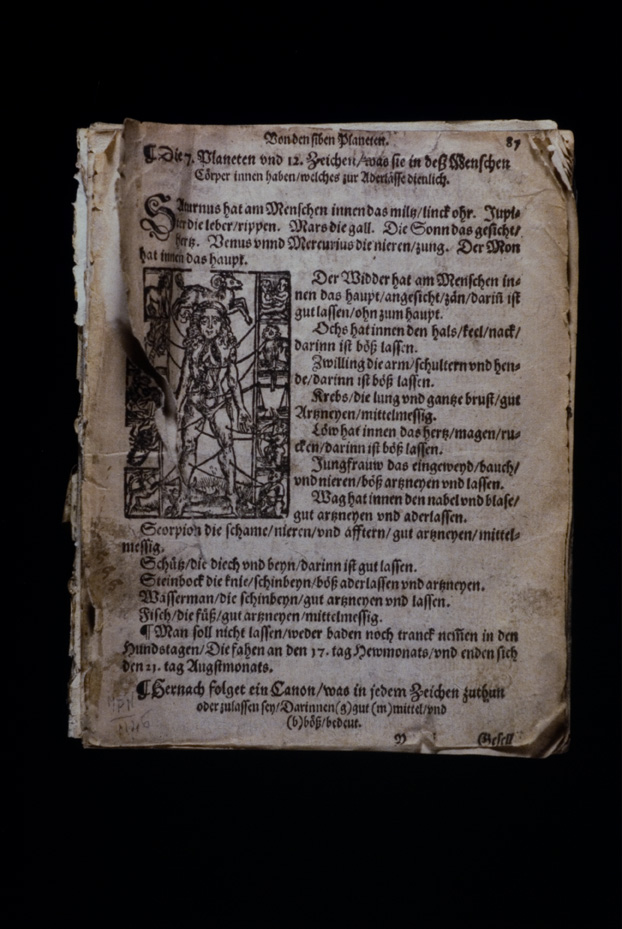 Von den siben Planeten. 87
¶ Die 7. Planeten vnd 12. Zeichen/was sie in deß Menschen
Cörper innen haben/welches zur Aderlässe dienlich.
Saturnus hat am Menschen innen das miltz/linck ohr. Jupi-
ter die leber/rippen. Mars die gall. Die Sonn das gesicht/
hertz. Venus vnnd Mercurius die nieren/zung. Der Mon
hat innen das haupt.
Der Widder hat am Menschen in-
nen das haupt/angesicht/zän/dariñ ist
gut lassen/ohn zum haupt.
Ochs hat innen den hals/keel/nack/
darinn ist böß lassen.
Zwilling die arm/schultern vnd hen-
de/darinn ist böß lassen.
Krebs/die lung vnd gantze brust/gut
Artzneyen/mittelmessig.
Löw hat innen das hertz/magen/ru-
cken/darinn ist böß lassen.
Jungfrauw das eingeweyd/bauch/
vnd nieren/böß artzneyen vnd lassen.
Wag hat innen den nabel vnd blase/
gut artzneyen vnd aderlassen.
Scorpion die schame/nieren/vnd äfftern/gut artzneyen/mittel-
messig.
Schütz/die diech vnd beyn/darinn ist gut lassen.
Steinbock die knie/schinbeyn/böß aderlassen vnd artzneyen.
Wasserman/die schinbeyn/gut artzneyen vnd lassen.
Fisch/die füß/gut artzneyen/mittelmessig.
¶ Man soll nicht lassen/weder baden noch tranck nem̃en in den
Hundstagen/Die fahen an den 17. tag Hewmonats/vnd enden sich
den 21. tag Augstmonats.
¶ Hernach folget ein Canon/was in jedem Zeichen zuthun
oder zulassen sey/Darinnen (g) gut (m) mittel/vnd
(b) böß/bedeut.
Gesell